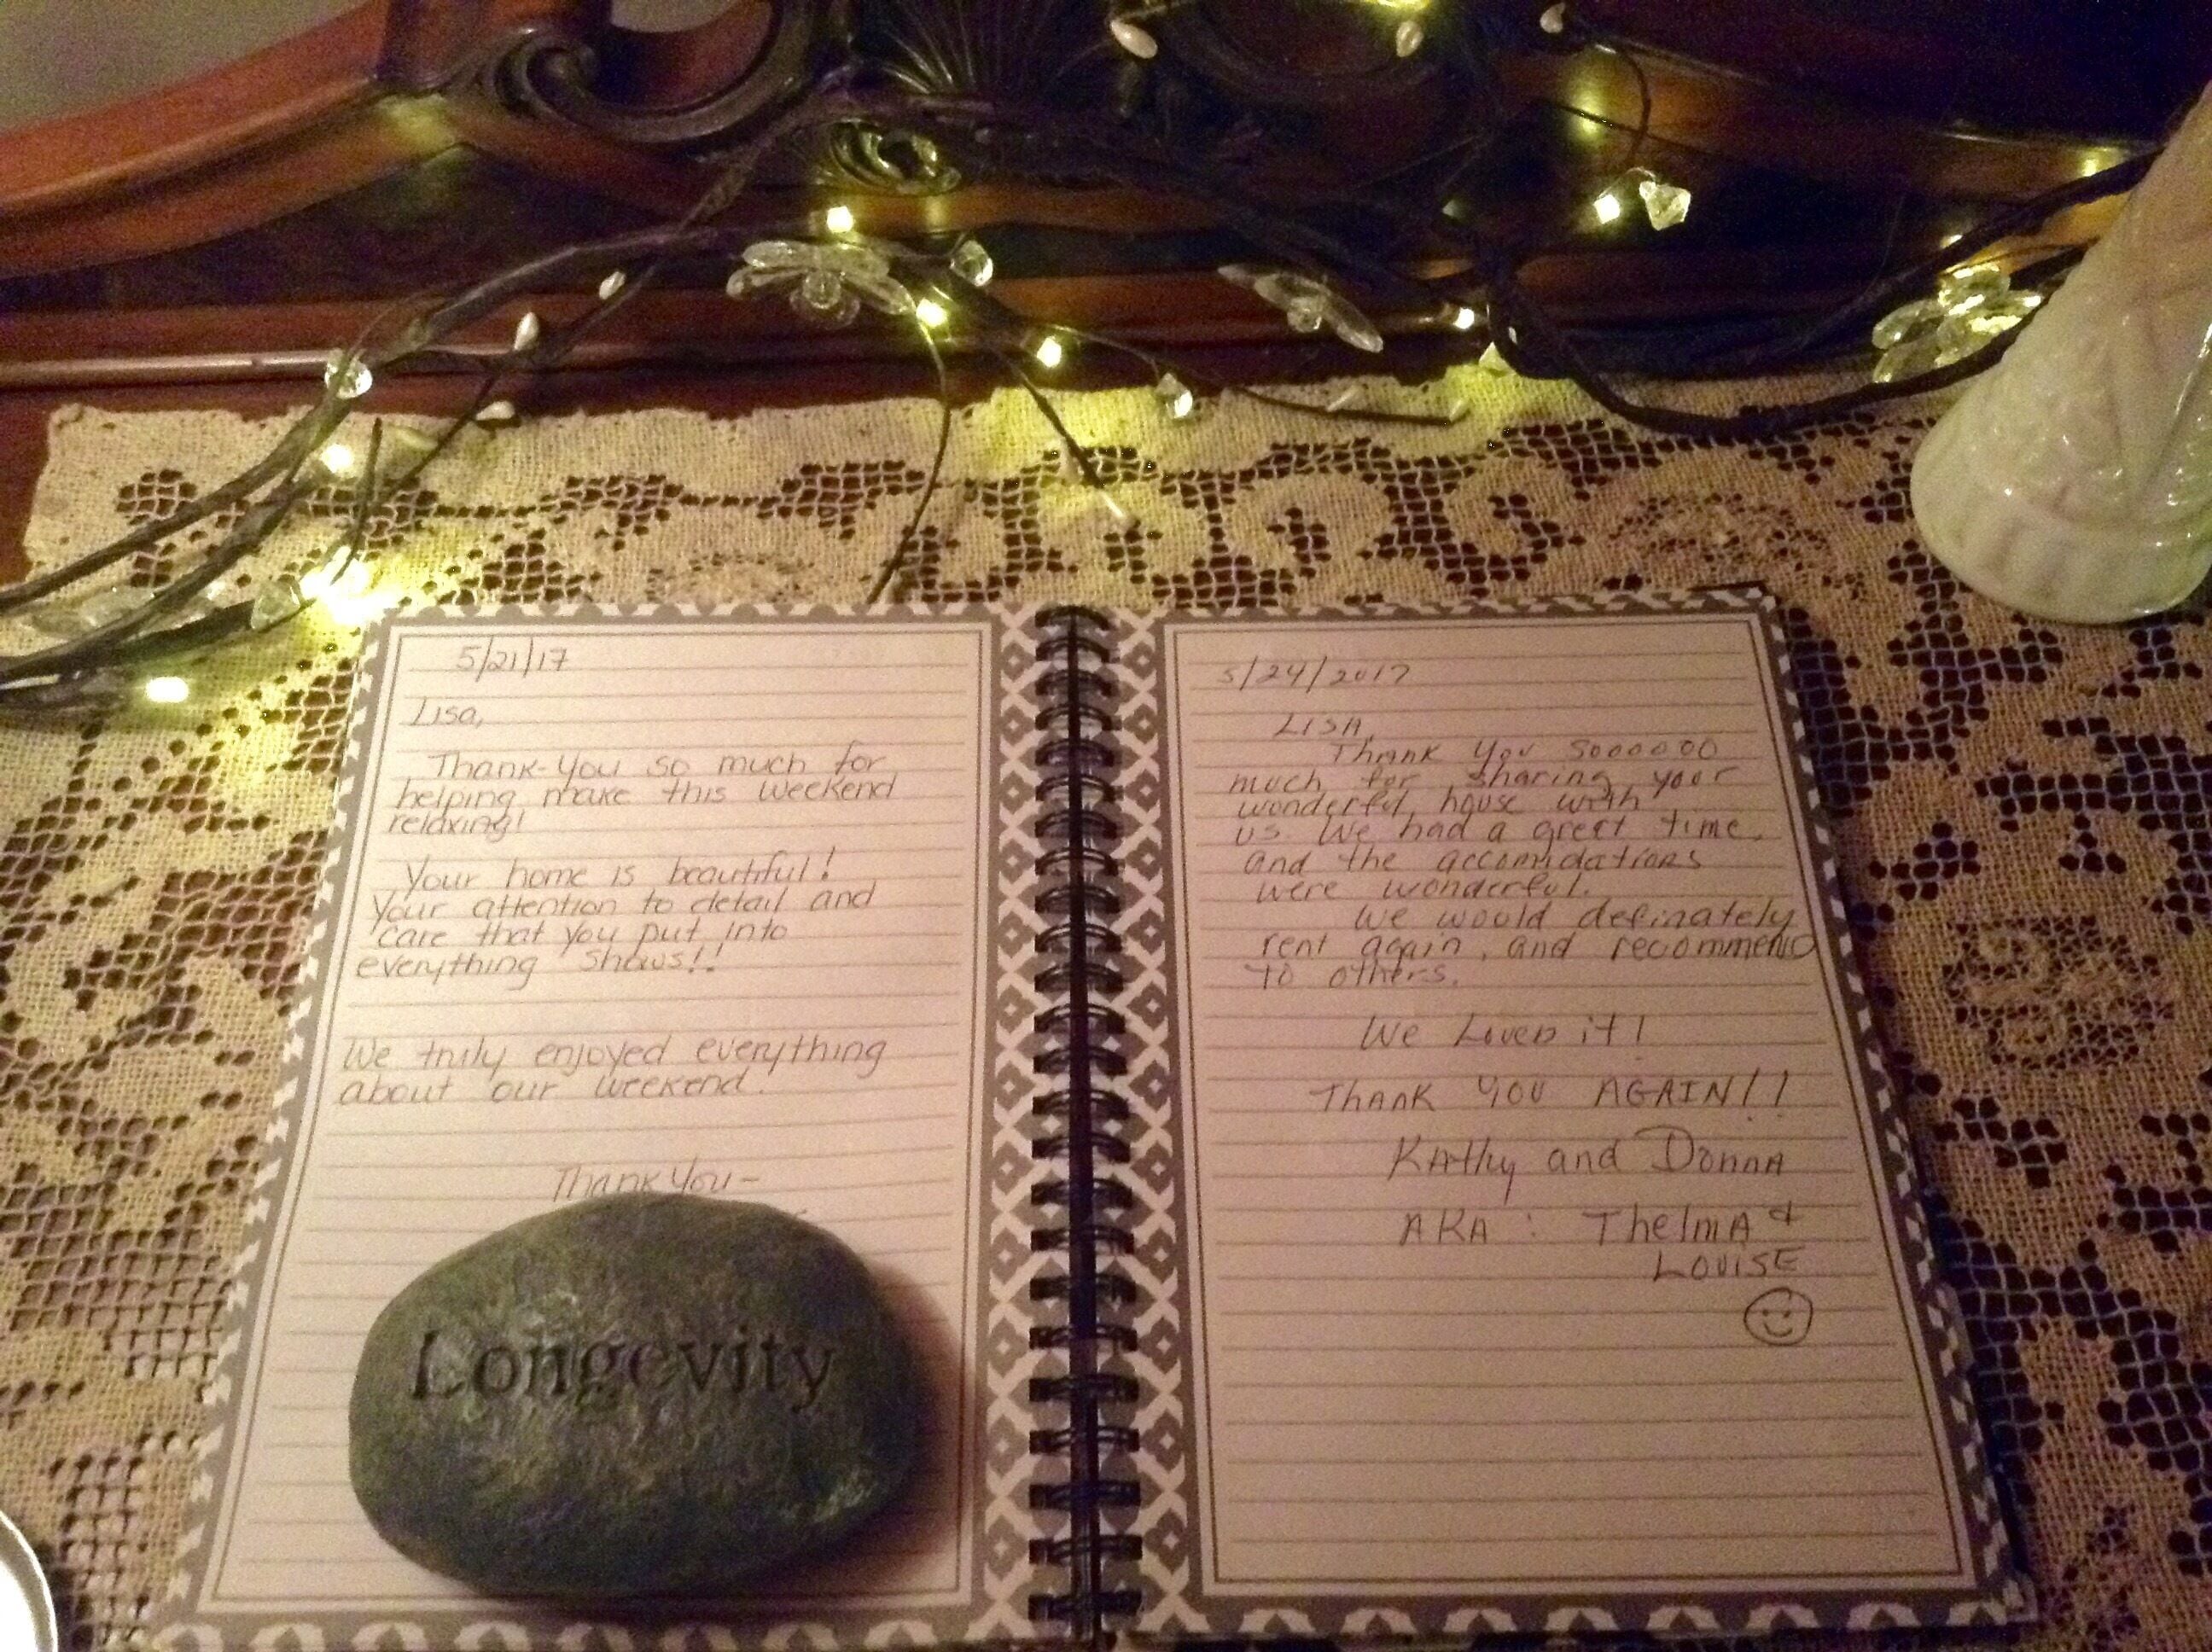 5/21/17
Lisa,
Thank-You so much for
helping make this weekend
relaxing!
Your home is beautiful!
Your attention to detail and
care that you put into
everything shows!!
We truly enjoyed everything
about our weekend.
Thank You-
Longevity
5/24/2017
LISA,
Thank you soooooo
much for sharing your
wonderful house with
us. We had a great time,
and the accomidations
were wonderful.
We would definately
rent again, and recommend
to others.
We Loved it!
THANK YOU AGAIN!!
Kathy and Donna
AKA: Thelma &
Louise